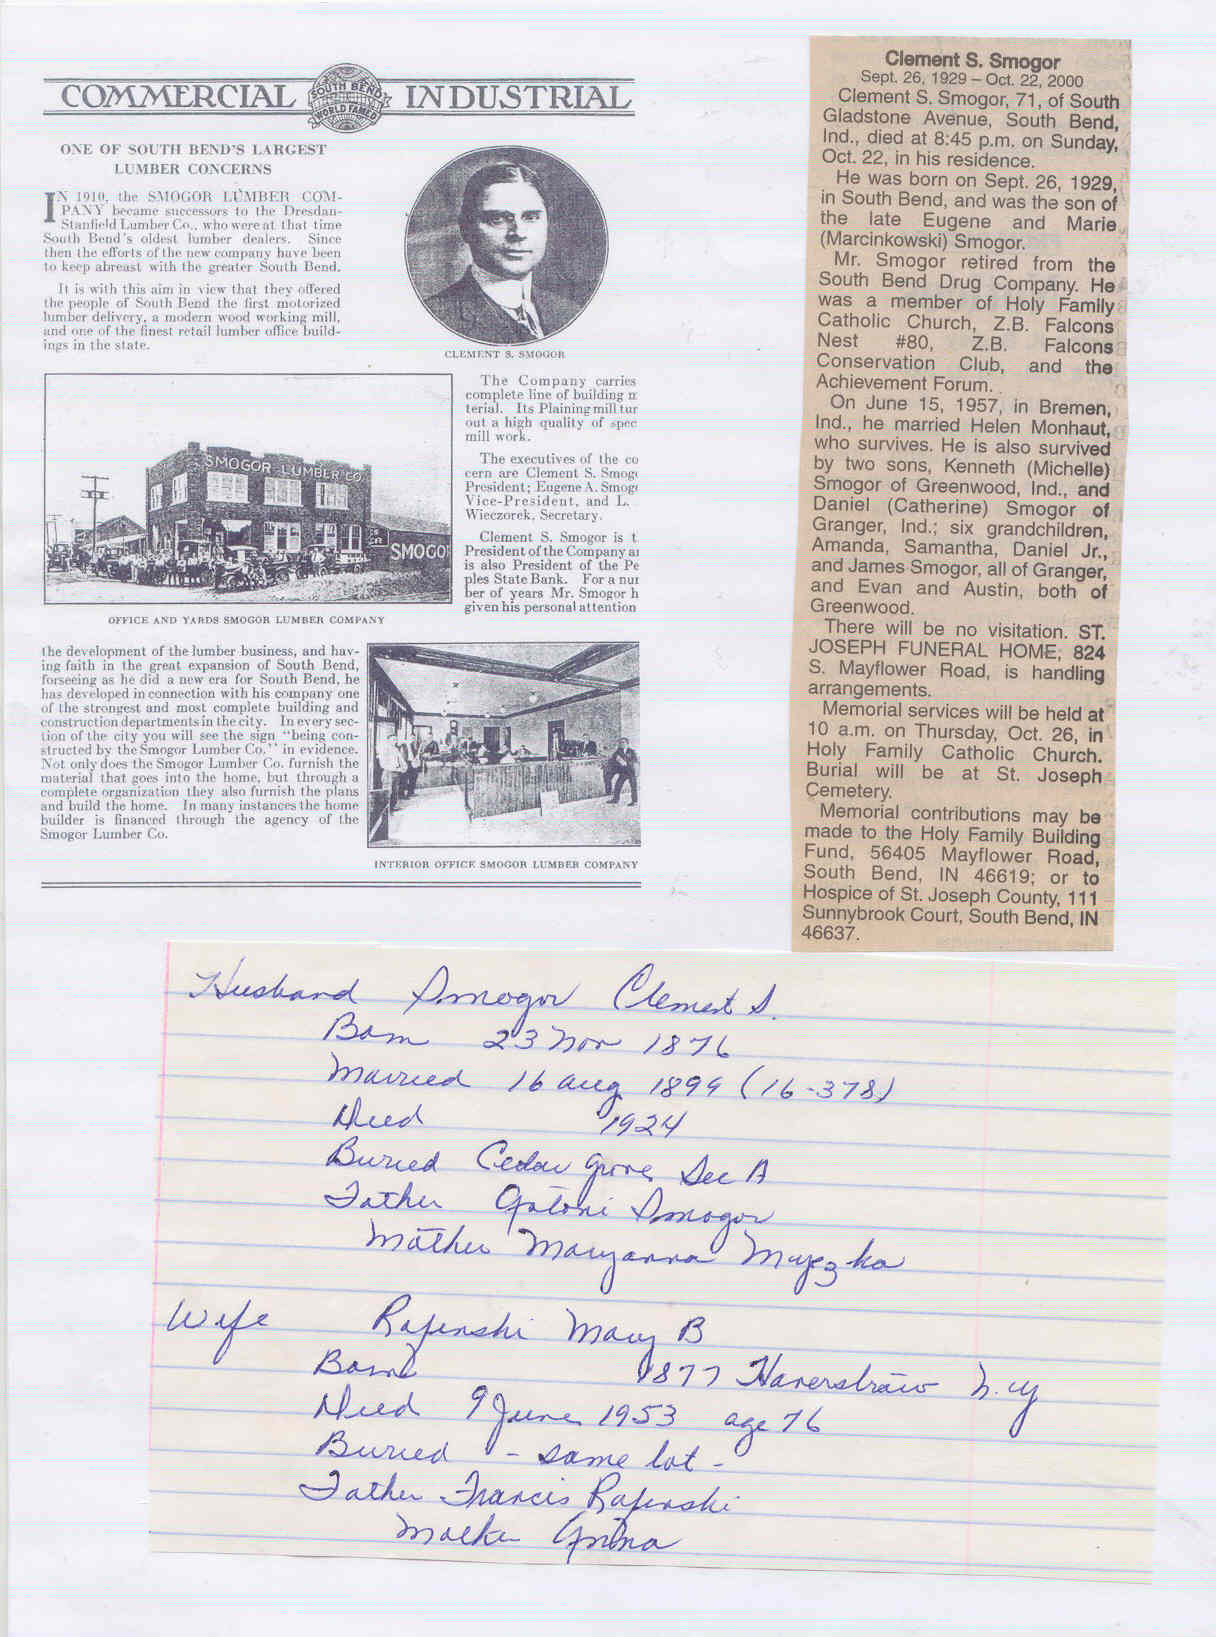 COMMERCIAL SOUTH BEND WORLD FAMED INDUSTRIAL
ONE OF SOUTH BEND'S LARGEST
LUMBER CONCERNS
IN 1910, the SMOGOR LUMBER COM-
PANY became successors to the Dresdan-
Stanfield Lumber Co., who were at that time
South Bend's oldest lumber dealers. Since
then the efforts of the new company have been
to keep abreast with the greater South Bend.
It is with this aim in view that they offered
the people of South Bend the first motorized
lumber delivery, a modern wood working mill,
and one of the finest retail lumber office build-
ings in the state.
CLEMENT S. SMOGOR
SMOGOR LUMBER CO.
SMOGO
OFFICE AND YARDS SMOGOR LUMBER COMPANY
The Company carries
complete line of building m
terial. Its Plaining mill tur
out a high quality of spec
mill work.
The executives of the co
cern are Clement S. Smogo
President; Eugene A. Smogo
Vice-President, and L.
Wieczorek, Secretary.
Clement S. Smogor is t
President of the Company a
is also President of the Pe
ples State Bank. For a nu
ber of years Mr. Smogor h
given his personal attention
the development of the lumber business, and hav-
ing faith in the great expansion of South Bend,
forseeing as he did a new era for South Bend, he
has developed in connection with his company one
of the strongest and most complete building and
construction departments in the city. In every sec-
tion of the city you will see the sign "being con-
structed by the Smogor Lumber Co." in evidence.
Not only does the Smogor Lumber Co. furnish the
material that goes into the home, but through a
complete organization they also furnish the plans
and build the home. In many instances the home
builder is financed through the agency of the
Smogor Lumber Co.
INTERIOR OFFICE SMOGOR LUMBER COMPANY
Clement S. Smogor
Sept. 26, 1929 – Oct. 22, 2000
Clement S. Smogor, 71, of South
Gladstone Avenue, South Bend,
Ind., died at 8:45 p.m. on Sunday,
Oct. 22, in his residence.
He was born on Sept. 26, 1929,
in South Bend, and was the son of
the late Eugene and Marie
(Marcinkowski) Smogor.
Mr. Smogor retired from the
South Bend Drug Company. He
was a member of Holy Family
Catholic Church, Z.B. Falcons
Nest #80, Z.B. Falcons
Conservation Club, and the
Achievement Forum.
On June 15, 1957, in Bremen,
Ind., he married Helen Monhaut,
who survives. He is also survived
by two sons, Kenneth (Michelle)
Smogor of Greenwood, Ind., and
Daniel (Catherine) Smogor of
Granger, Ind.; six grandchildren,
Amanda, Samantha, Daniel Jr.,
and James Smogor, all of Granger,
and Evan and Austin, both of
Greenwood.
There will be no visitation. ST.
JOSEPH FUNERAL HOME, 824
S. Mayflower Road, is handling
arrangements.
Memorial services will be held at
10 a.m. on Thursday, Oct. 26, in
Holy Family Catholic Church.
Burial will be at St. Joseph
Cemetery.
Memorial contributions may be
made to the Holy Family Building
Fund, 56405 Mayflower Road,
South Bend, IN 46619; or to
Hospice of St. Joseph County, 111
Sunnybrook Court, South Bend, IN
46637.
Husband Smogor Clement S.
Born 23 Nov 1876
Married 16 Aug 1899 (16-378)
Died 1924
Buried Cedar Grove Sec A
Father Antoni Smogor
Mother Maryanna
Wife Rafinski Mary B
Born 1877 Haverstraw N.Y
Died 9 June 1953 age 76
Buried - same lot -
Father Francis Rafinski
Mother Anna